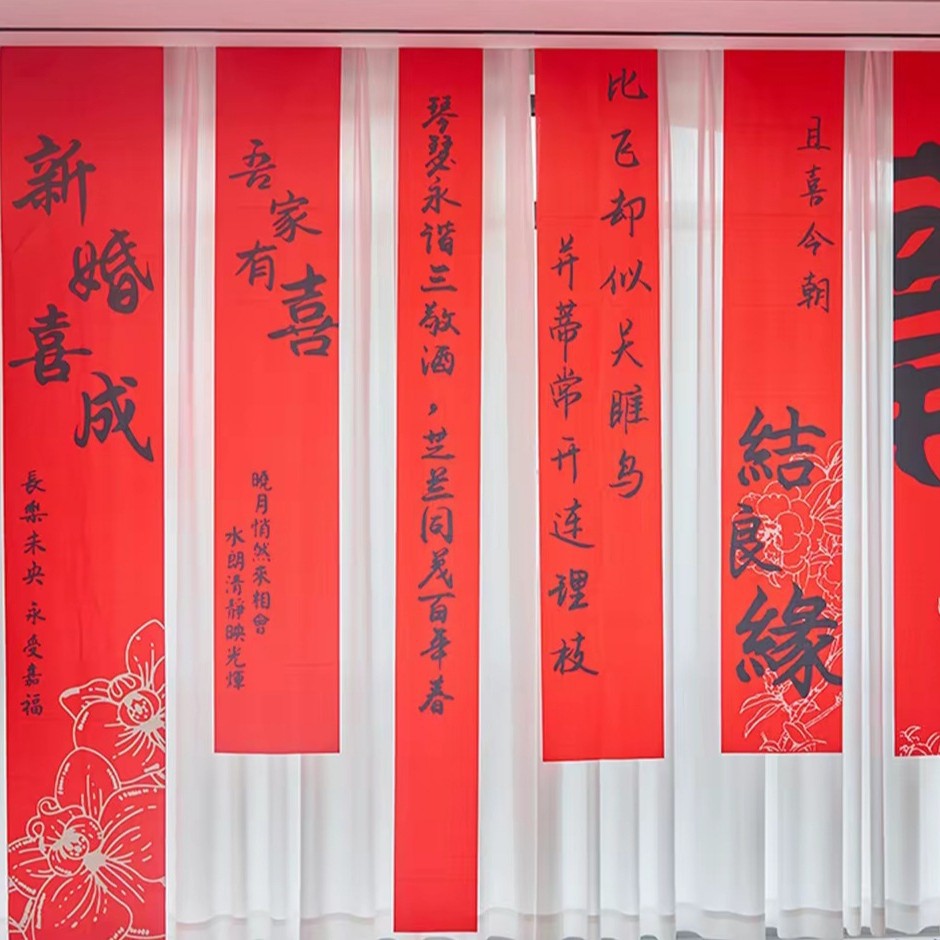 新婚喜成
長樂未央 永受嘉福
吾家有喜
曉月悄然來相會
水朗清靜映光煇
琴瑟永谐三敬酒，芝兰同茂百年春
比飞却似关雎鸟
并蒂常开连理枝
且喜今朝
結良緣